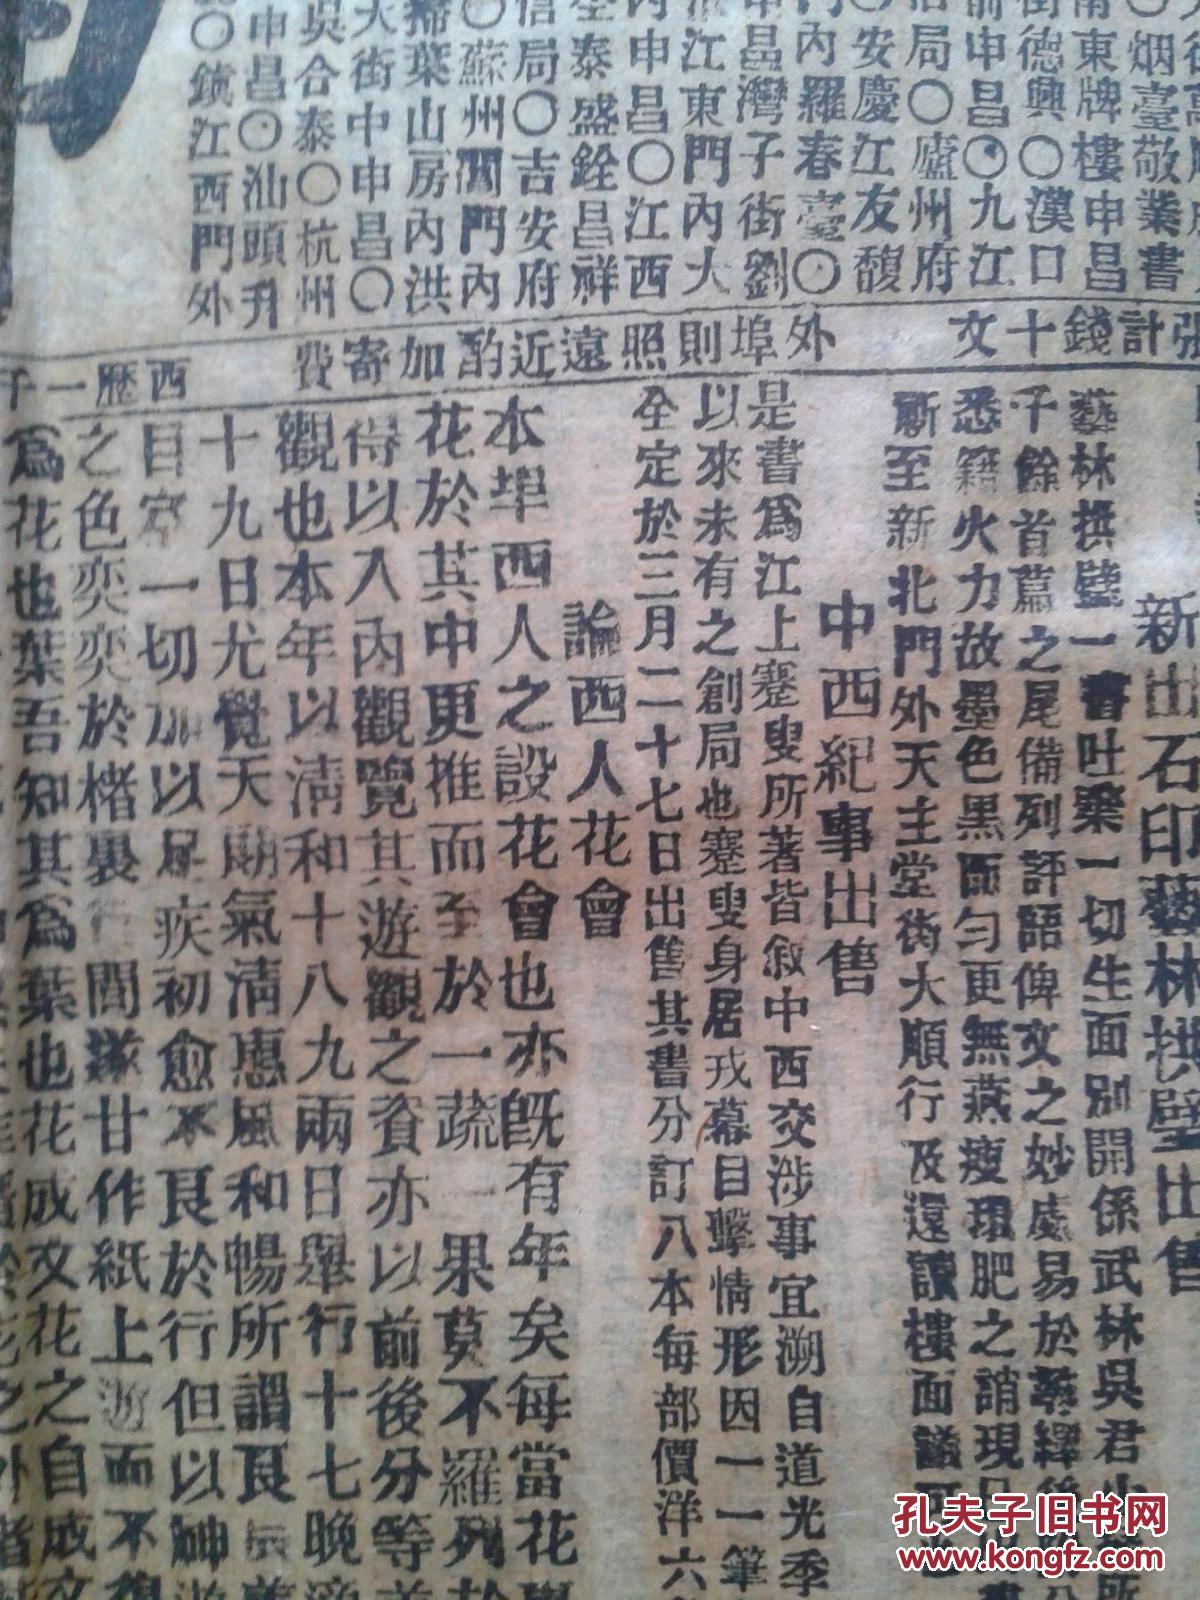 烟臺敬業書
南東牌樓申昌
街德興〇漢口
前申昌〇九江
信局〇廬州府
〇安慶江友馥
門內羅春臺〇
申昌灣子街劉
江東門內大
內申昌〇江西
全泰盛銓昌祥
信局〇吉安府
〇蘇州閶門內
掃葉山房內洪
大街中申昌〇
吳合泰〇杭州
申昌〇汕頭升
〇鎮江西門外
張計錢十文
外埠則照遠近酌加寄費
西歷一千
新出石印藝林拱璧出售
藝林拱璧一書吐棄一切生面別開係武林吳君小
子餘首篇之尾備列評語俾文之妙處易於尋繹
悉籍火力故墨色黑而勻更無燕瘦環肥之誚現
新至新北門外天主堂街大順行及遠讀樓面議可
中西紀事出售
是書爲江上蹇叟所著皆叙中西交涉事宜溯自道光季
以來未有之創局也蹇叟身居戎幕目擊情形因一一筆
全定於三月二十七日出售其書分訂八本每部價洋六
論西人花會
本埠西人之設花會也亦既有年矣每當花
花於其中更推而至於一蔬一果莫不羅列於
得以入內觀覽其遊觀之資亦以前後分等
觀也本年以清和十八九兩日舉行十七晚
十九日尤覺天朗氣清惠風和暢所謂良辰
目窮一切加以足疾初愈不良於行但以神遊
之色奕奕於楮裏行間遂甘作紙上遊而不復
爲花也葉吾知其爲葉也花成文花之自成文